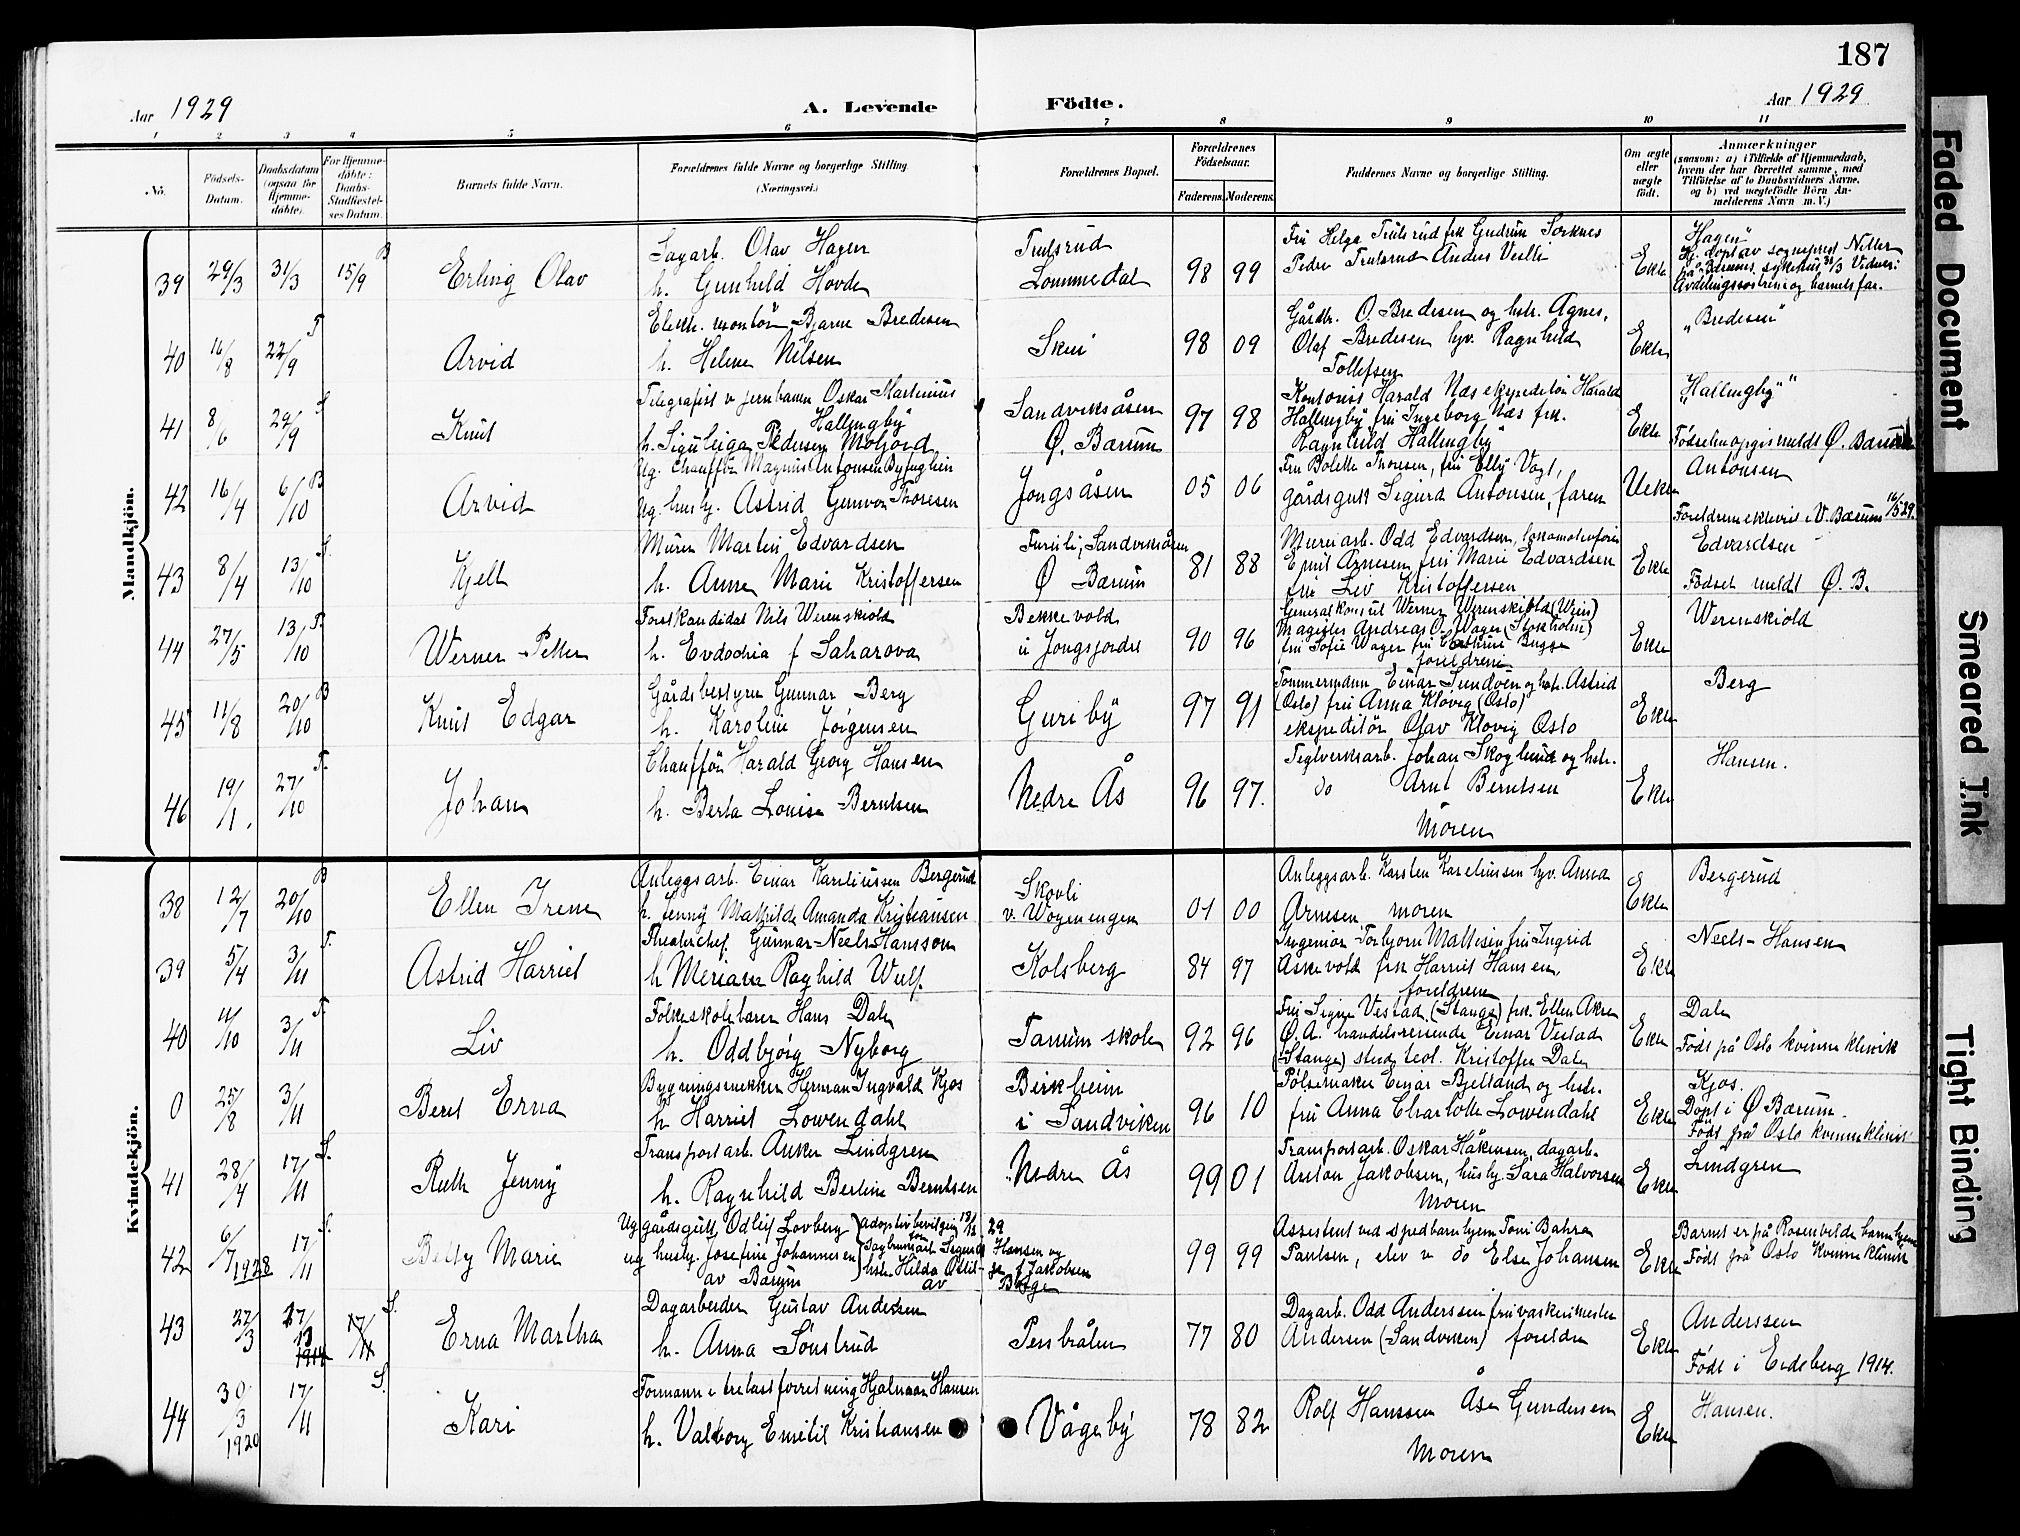 187
Aar 1929
A. Levende Födte.
Aar 1929
1 2 3 4 5 6 7 8 9 10 11
No.
Födsels-Datum.
Daabsdatum (ogsaa for Hjemme-döbte).
For Hjemme-döbte: Daabs-Stadfæstel-ses Datum.
Barnets fulde Navn.
Forældrenes fulde Navne og borgerlige Stilling. (Næringsvei.)
Forældrenes Bopæl.
Forældrenes Födselsaar.
Faderens. Moderens.
Faddernes Navne og borgerlige Stilling.
Om ægte eller uægte født.
Anmærkninger
(saasom: a) i Tilfælde af Hjemmedaab, hvem der har forrettet samme, med Tilføielse af to Daabsvidners Navne, og b) ved uægtefødte Börn An-melderens Navn m. V.)
Mandkjön.
39 29/3 31/3 15/9 B Erling Olav
Sagarb. Olav Hagen
h. Gunhild Hovde
Trulsrud
Lommedal 98 99
Fru Helga Trulsrud frk Gudrun Sorknes
Pedro Trulsrud Anders Veslli
Ekte
Hagen"
Hj. døpt av sogneprest
på Bærums sykehus 31/3
Avdelingssøstrene og barnets far.
40 16/8 22/9 T Arvid
Elektr. montör Bjarne Bredesen
h. Helene Nilsen
Skui 98 09
Gårdbr. O. Bredesen og hstr. Agnes,
Olaf Bredesen hv. Ragnhild
Tollefsen
Ekte
„Bredesen"
41 8/6 29/9 S Knut
Telegrafist v jernbanen Oskar Martinius
Hallingby
h. Pedersen Moljord
Sandviksåsen
Ø. Bærum 97 98
Kontorist Harald Næs ekspeditör Harald
Hallingby fru Ingeborg Næs frk.
Ragnhild Hallingby
Ekte
„Hallingby"
Fødselen opgis meldt Ø. Bærum
42 16/4 6/10 B Arvid
Ug. Chauffør Magnus Antonsen Byfuglein
Ug. husby. Astrid Gunvor Thoresen
Jongsåsen 05 06
Fru Bolette Thoresen, fru Elly Vogt,
gårdsgutt Sigurd Antonsen, faren
Uekte
Antonsen
Foreldrene ekteviet i V. Bærum 16/5 29.
43 8/4 13/10 S. Kjell
Murer Martin Edvardsen
h. Anna Marie Kristoffersen
Furuli, Sandviksåsen
Ø Bærum 81 88
Murerarb. Odd Edvardsen, lokomotivfører
Emil Arnesen fru Marie Edvardsen
fru Liv Kristoffersen
Ekte
Edvardsen
Fødsel meldt Ø. B.
44 27/5 13/10 T. Werner Petter
Forstkandidat Nils Werenskiold
h. Evdochia f Saharova
Bekkevold
i Jongsjordet 90 96
Generalkonsul Werner Werenskiold (Wien)
Magister Andreas O. Wager (Stokholm)
fru Sofie Wager fru Bugge
foreldrene
Ekte
Werenskiold
45 11/8 20/10 B Knut Edgar
Gårdsbestyrer Gunnar Berg
h. Karoline Jörgensen
Guriby 97 91
Tømmermann Einar Sundven og hstr. Astrid
(Oslo) fru Anna Klövig (Oslo)
ekspeditör Olav Klövig Oslo
Ekte
Berg
46 19/1. 27/10 T. Johan
Chaufför Harald Georg Hansen
h. Berta Louise Berntsen
Nedre Ås 96 97.
Teglverksarb. Johan Skoglund og hstr.
do Arnt Berntsen
Moren
Ekte
Hansen.
Kvindekjön.
38 12/7 20/10 B Ellen Irene
Anleggsarb. Einar Kareliussen Bergerud
h. Jenny Mathilde Amanda Kristiansen
Skovli
v. Wøyenengen 01 00
Anleggsarb. Karsten Kareliussen hv. Anna
Arnesen moren
Ekte
Bergerud
39 5/4 3/11 T. Astrid Harriet
Theaterchef Gunnar Neels-Hansson
h Meriam Raghild Wulf.
Kolsberg 84 97
Ingeniør Torbjørn Mattisen fru Ingrid
Askevold frk Harriet Hansen,
foreldrene
Ekte
Neels-Hansen
40 11/10 3/11 T. Liv
Folkeskolelærer Hans Dale
h. Oddbjørg Nyborg
Tanum skole 92 96
Fru Signe Vestad (Stange) frk. Ellen Aker
Ø. A. handelsreisende Einar Vestad
(Stange) stud. teol. Kristoffer Dale
Ekte
Dale
Født på Oslo kvinneklinik
0 25/8 3/11 Beret Erna
Bygningssnekker Herman Ingvald Kjos
h Harriet Lowendahl
Birkheim
i Sandviken 96 10
Pølsemaker Einar Bjelland og hstr.
fru Anna Charlotte Lowendahl
Ekte
Kjos.
Døpt i Ø Bærum.
Født på Oslo kvinneklinik
41 28/4 17/11 S. Ruth Jenny
Transportarb. Anker Lindgren
h. Ragnhild Bertine Berntsen
Nedre Ås 99 01
Transportarb. Oskar Håkensen, dagarb.
Anton Jakobsen, husby. Sara Halvorsen
Moren
Ekte
Lindgren
42 6/7 1928 17/11 S. Betty Marie
Ug gårdsgutt Odleif Lovberg
ug husby. Josefine Johannesen
av Bærum
Adoptivbevilgning 18/12 29
for
Sagbruksarb. Sigurd Hansen og
hstr. Hilda f Jakobsen
av Berge
99 99
Assistent ved spedbarnhjem Toni Bahra
Paulsen, elev v do Else Johansen
Ekte
Barnet er på Rosenvilde barnehjem
Født på Oslo Kvinneklinik
43 27/3 1914 17/11 S. Erna Martha
Dagarbeider Gustav Andersen
h. Anna Sønstrud
Persbråten 77 80
Dagarb. Odd Anderssen fru vaskerimester
Andersen (Sandviken) foreldre
Ekte
Anderssen
Født i Eidsberg 1914.
44 30/3 1920 17/11 S. Kari
Formann i trelastforretning Hjalmar Hansen
h. Valborg Emelie Kristiansen
Vågeby 78 82
Rolf Hanssen Åse Gundersen
Moren
Ekte
Hansen.
Faded Document
Smeared Ink
Tight Binding